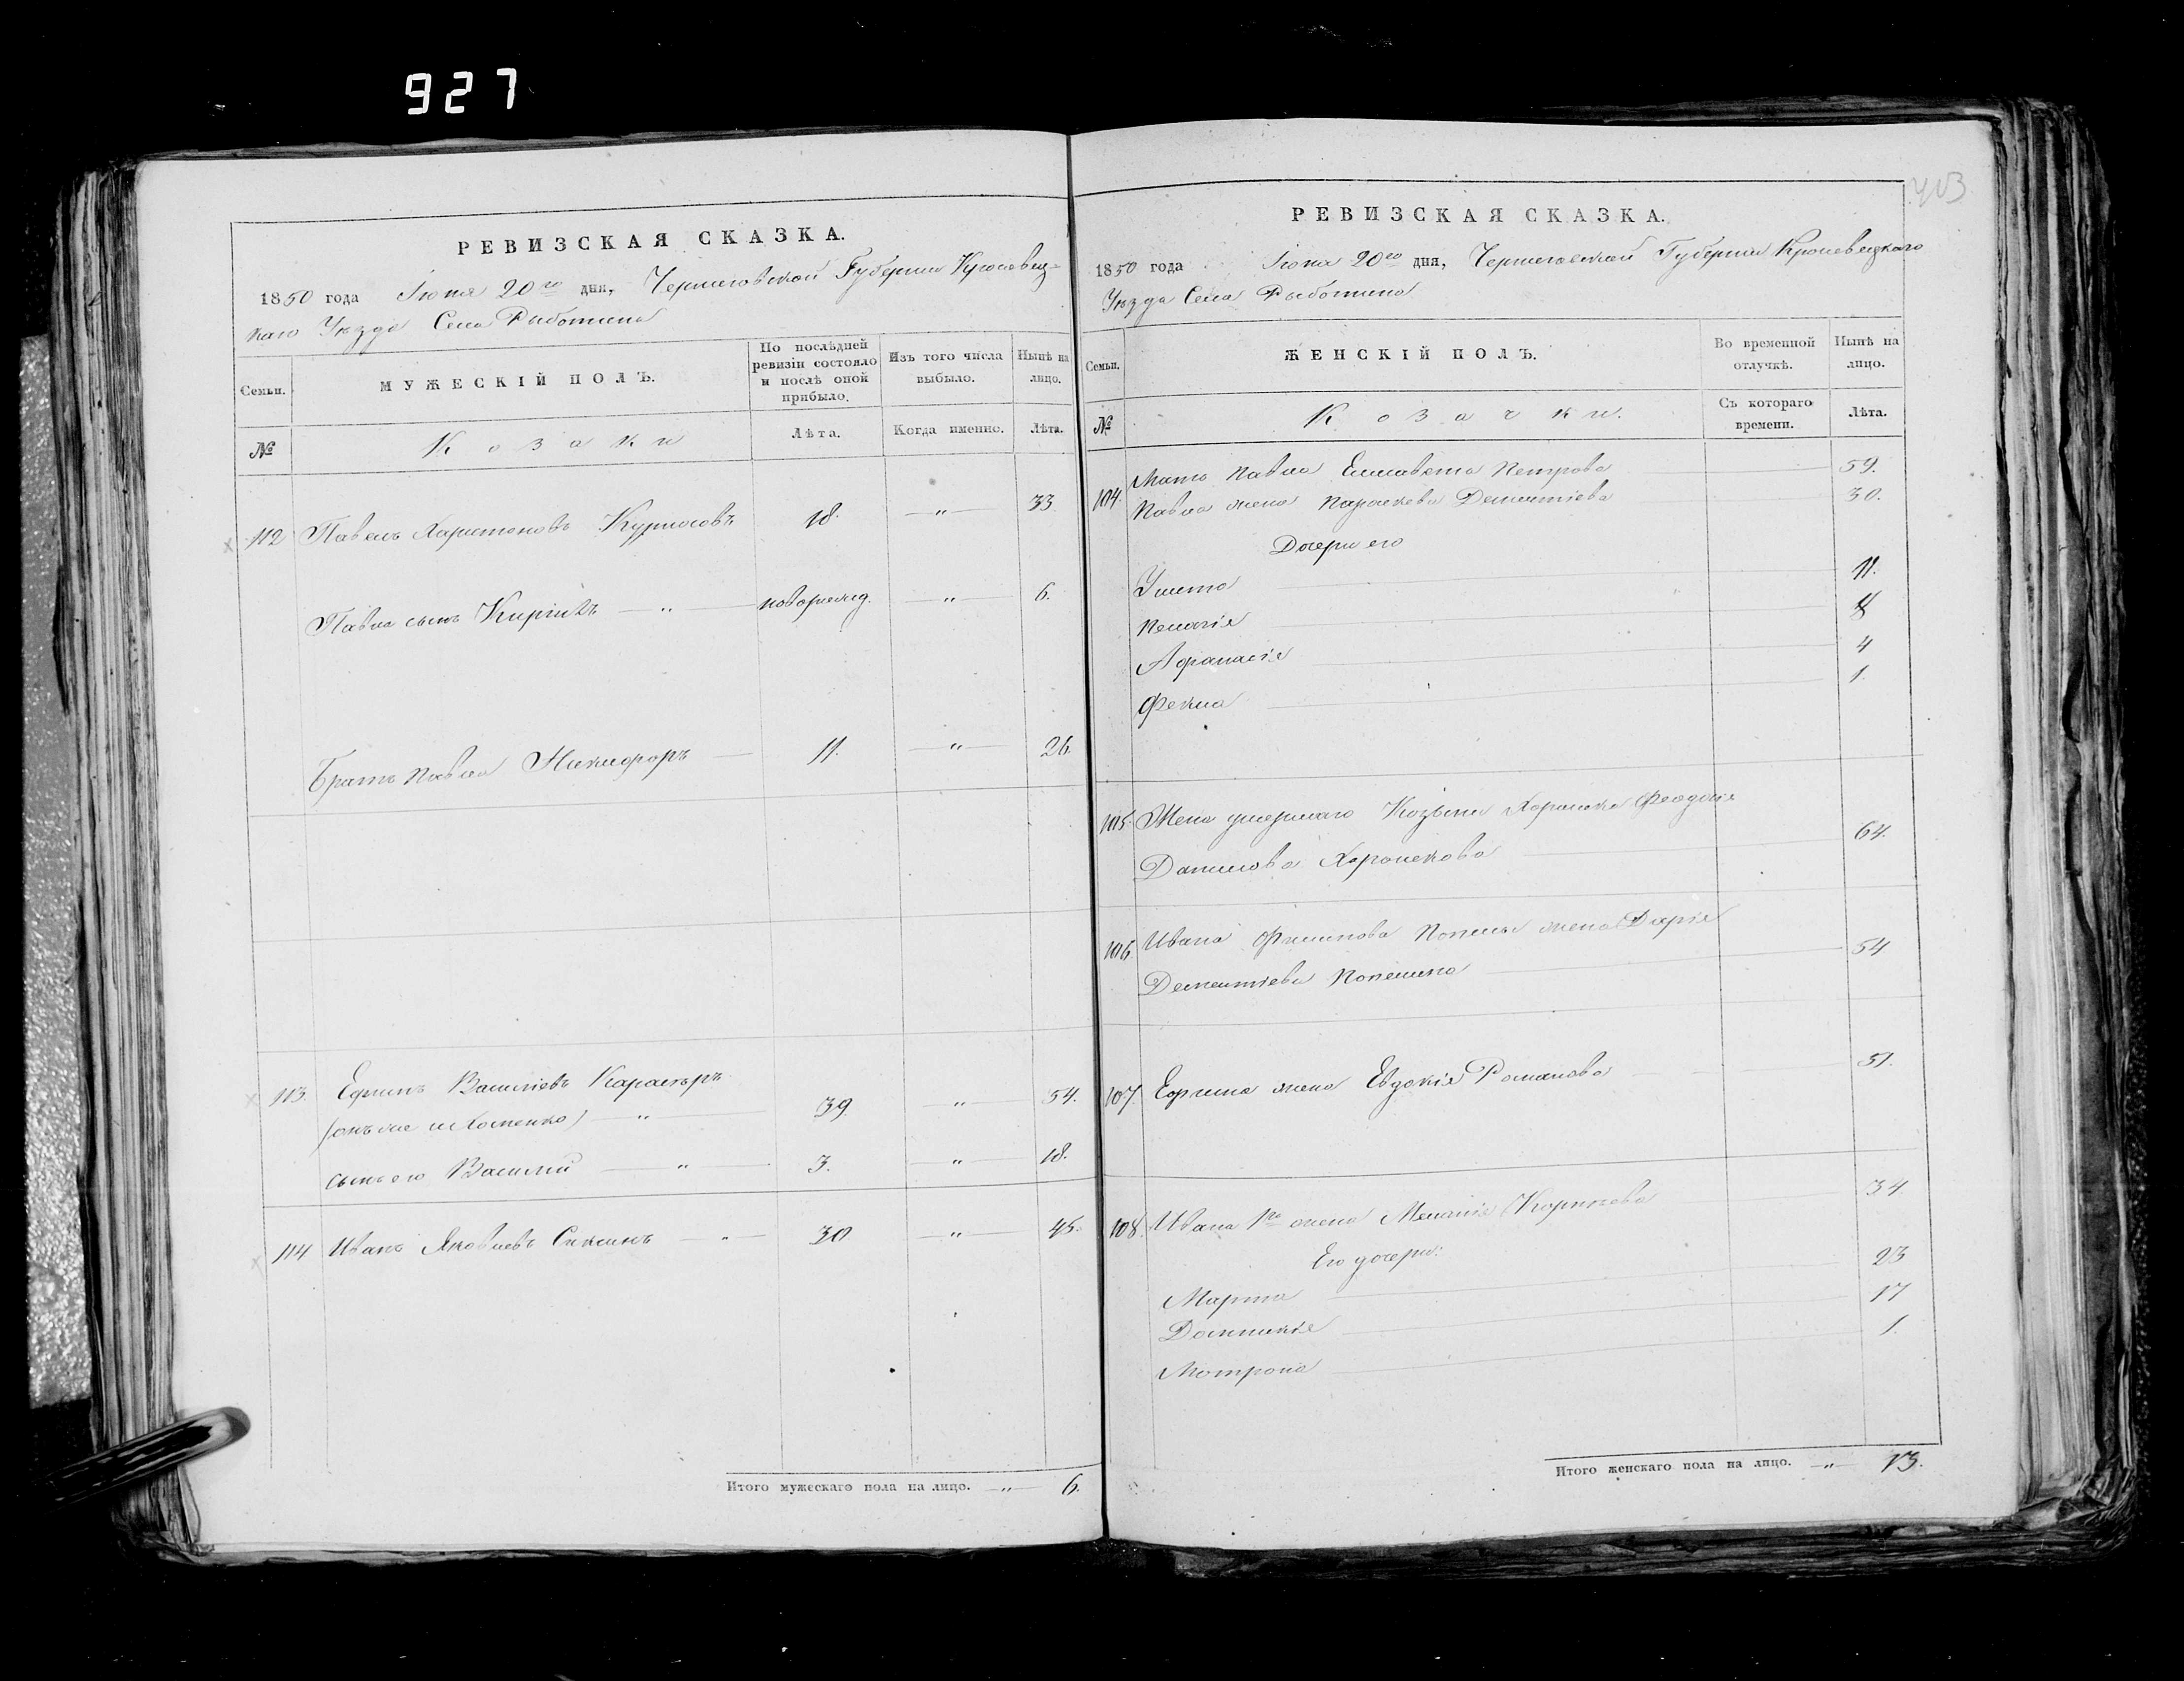 927
403
РЕВИЗСКАЯ СКАЗКА.
1850 года Іюня 20го дня, Черниговской Губерніи Кролевец-
каго Уѣзда Села Рыботина
Семьи.
МУЖЕСКІЙ ПОЛЪ.
По послѣдней ревизіи состояло и послѣ оной прибыло.
Изъ того числа выбыло.
Нынѣ на лицо.
№
Козаки
Лѣта.
Когда именно.
Лѣта.
112 Павелъ Харитоновъ 18. — " — 33
Павла сынъ — " — новорожд. — " — 6.
Братъ Павла Никифоръ — 11. — " — 26.
113. Ефимъ Василіевъ
(онъ же и Хоменко) — " — 39. — " — 54.
сынъ его Василій — " — 3. — " — 18.
114 Иванъ Яковлевъ — " — 30 — " — 45.
Итого мужескаго пола на лицо. — " — 6.
РЕВИЗСКАЯ СКАЗКА.
1850 года Іюня 20го дня, Черниговской Губерніи Кролевецкаго
Уѣзда Села Рыботина
Семьи.
ЖЕНСКІЙ ПОЛЪ.
Во временной отлучкѣ.
Нынѣ на лицо.
№
Козачки.
Съ котораго времени.
Лѣта.
104. Мать Павла Елисавета Петрова 59.
Павла жена Параскева Дементіева 30.
Дочери его
Улита 11.
Пелагія 8
Афанасія 4
Фекла 1.
105. Жена умершаго Козьмы Феодосія
Данилова 64.
106. Ивана Филипова жена Дарія
Дементіева 54
107. Ефима жена Евдокія Романова 51.
108. Ивана 1ая жена Меланія 34.
Его дочери:
Марина 23
Домникія 17
Мотрона 1.
Итого женскаго пола на лицо. — " — 13.